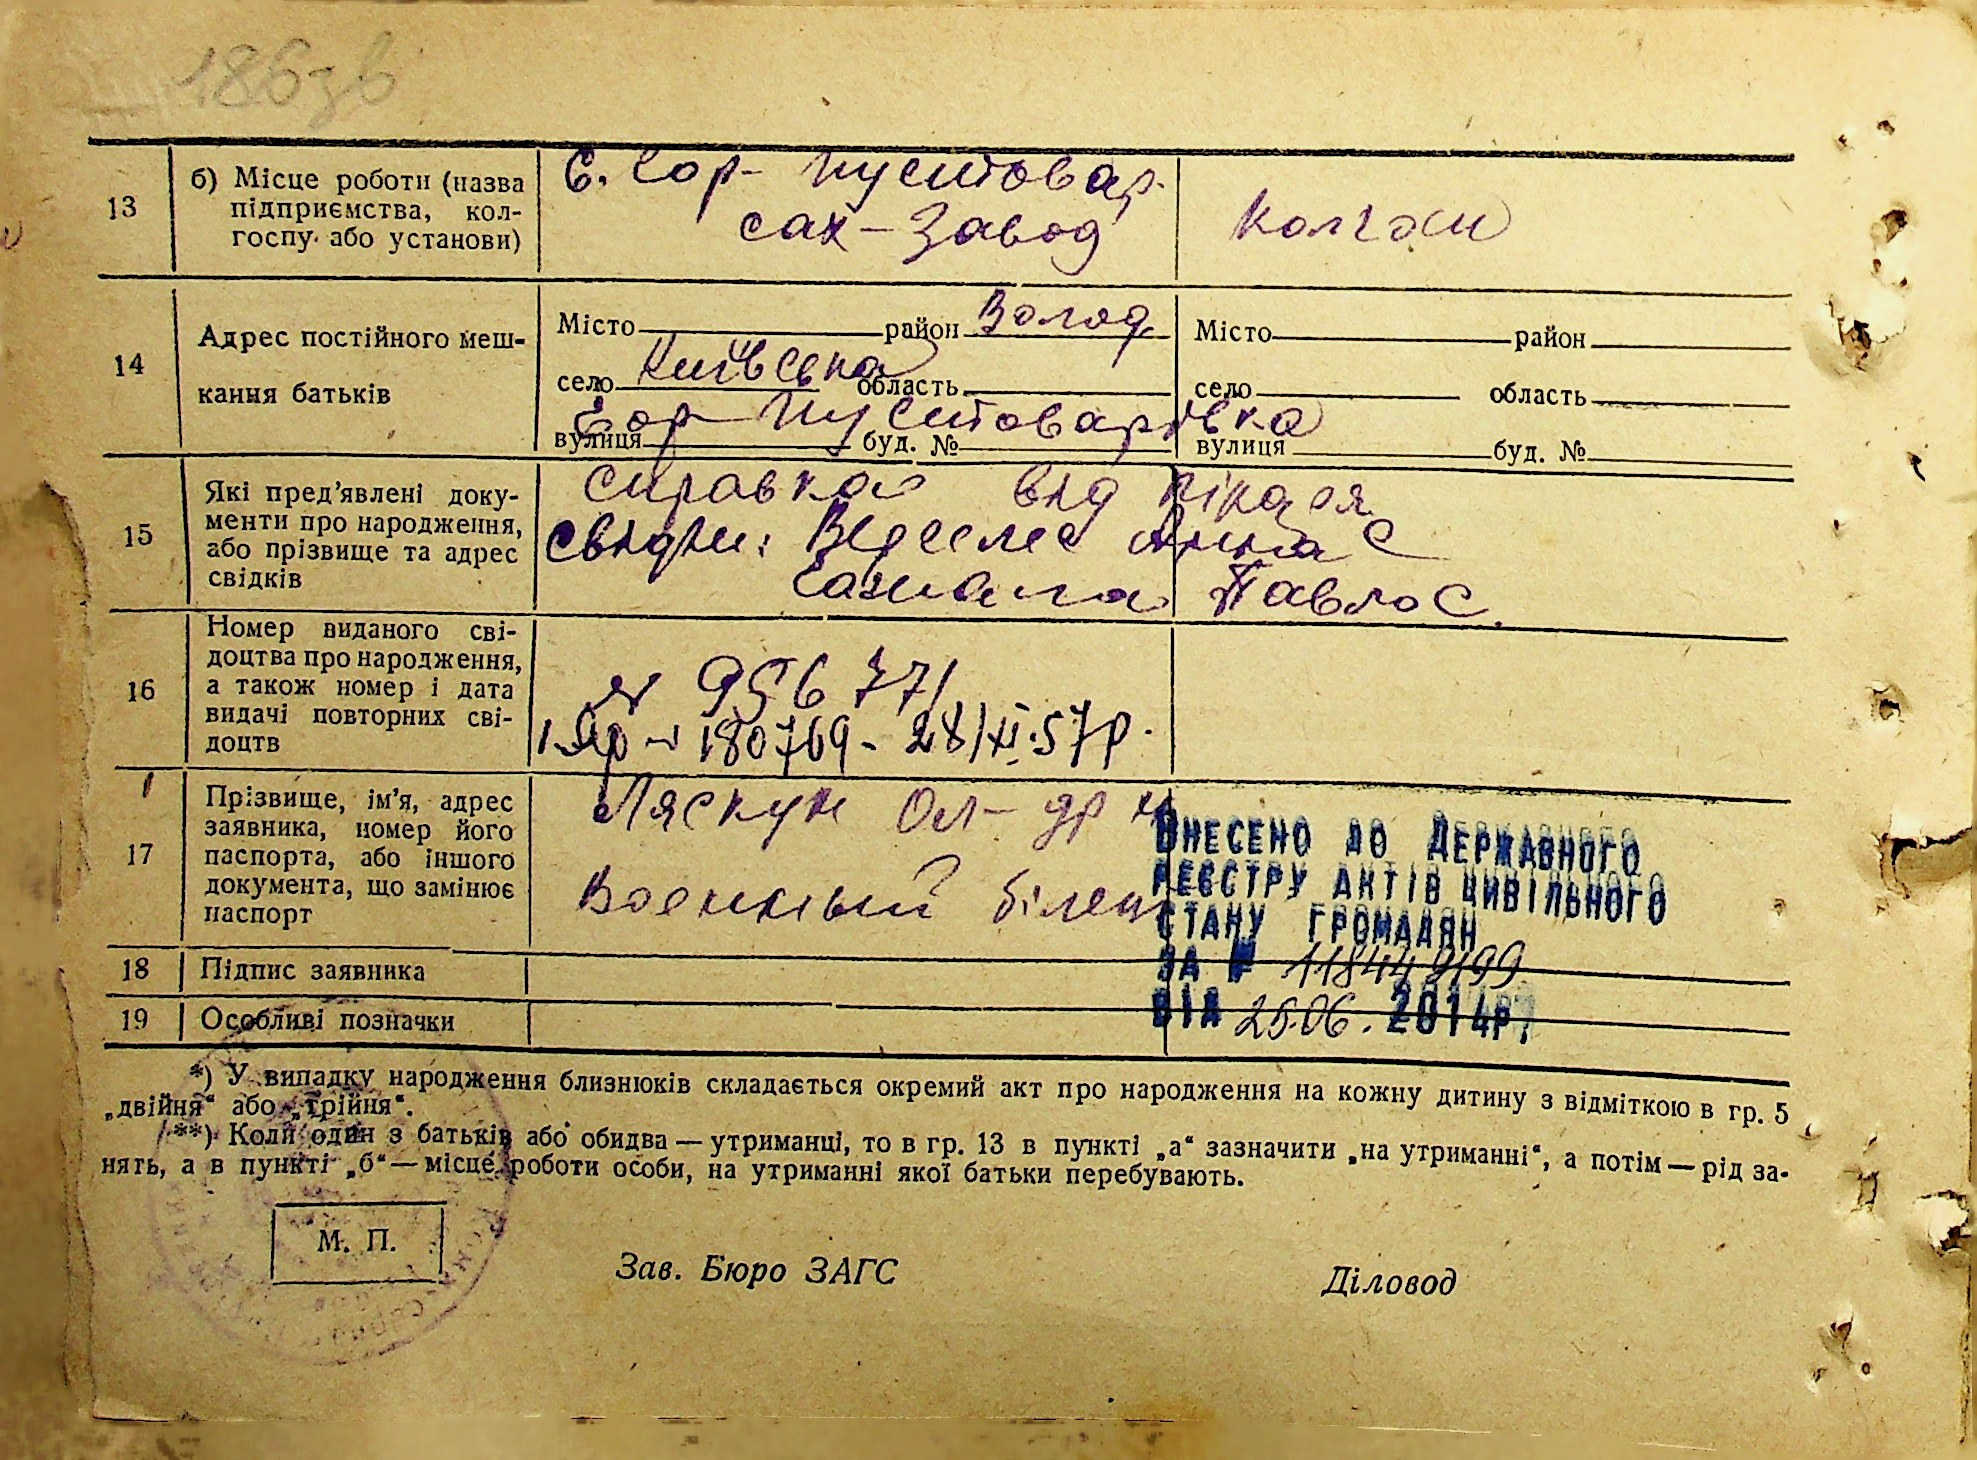 186зв
13
б) Місце роботи (назва
підприємства, кол-
госпу або установи)
С. Гор- Пустовар.
сах-завод
колгосп
14
Адрес постійного меш-
кання батьків
Місто район Волод.
село Київська область
Гор Пустоварівка
вулиця буд. №
Місто район
село область
вулиця буд. №
15
Які пред'явлені доку-
менти про народження,
або прізвище та адрес
свідків
справка від лікаря
свідки: Анна С
Павло С.
16
Номер виданого сві-
доцтва про народження,
а також номер і дата
видачі повторних сві-
доцтв
№ 95677/
180769 - 28/XI.57р.
17
Прізвище, ім'я, адрес
заявника, номер його
паспорта, або іншого
документа, що замінює
паспорт
Ляскун Ол-др
Военный білет
ВНЕСЕНО ДО ДЕРЖАВНОГО
РЕЄСТРУ АКТІВ ЦИВІЛЬНОГО
СТАНУ ГРОМАДЯН
ЗА №
ВІД 25.06. 2014р.
18
Підпис заявника
19
Особливі позначки
*) У випадку народження близнюків складається окремий акт про народження на кожну дитину з відміткою в гр. 5
„двійня“ або „трійня“.
**) Коли один з батьків або обидва — утриманці, то в гр. 13 в пункті „а“ зазначити „на утриманні“, а потім — рід за-
нять, а в пункті „б“ — місце роботи особи, на утриманні якої батьки перебувають.
М. П.
Зав. Бюро ЗАГС
Діловод